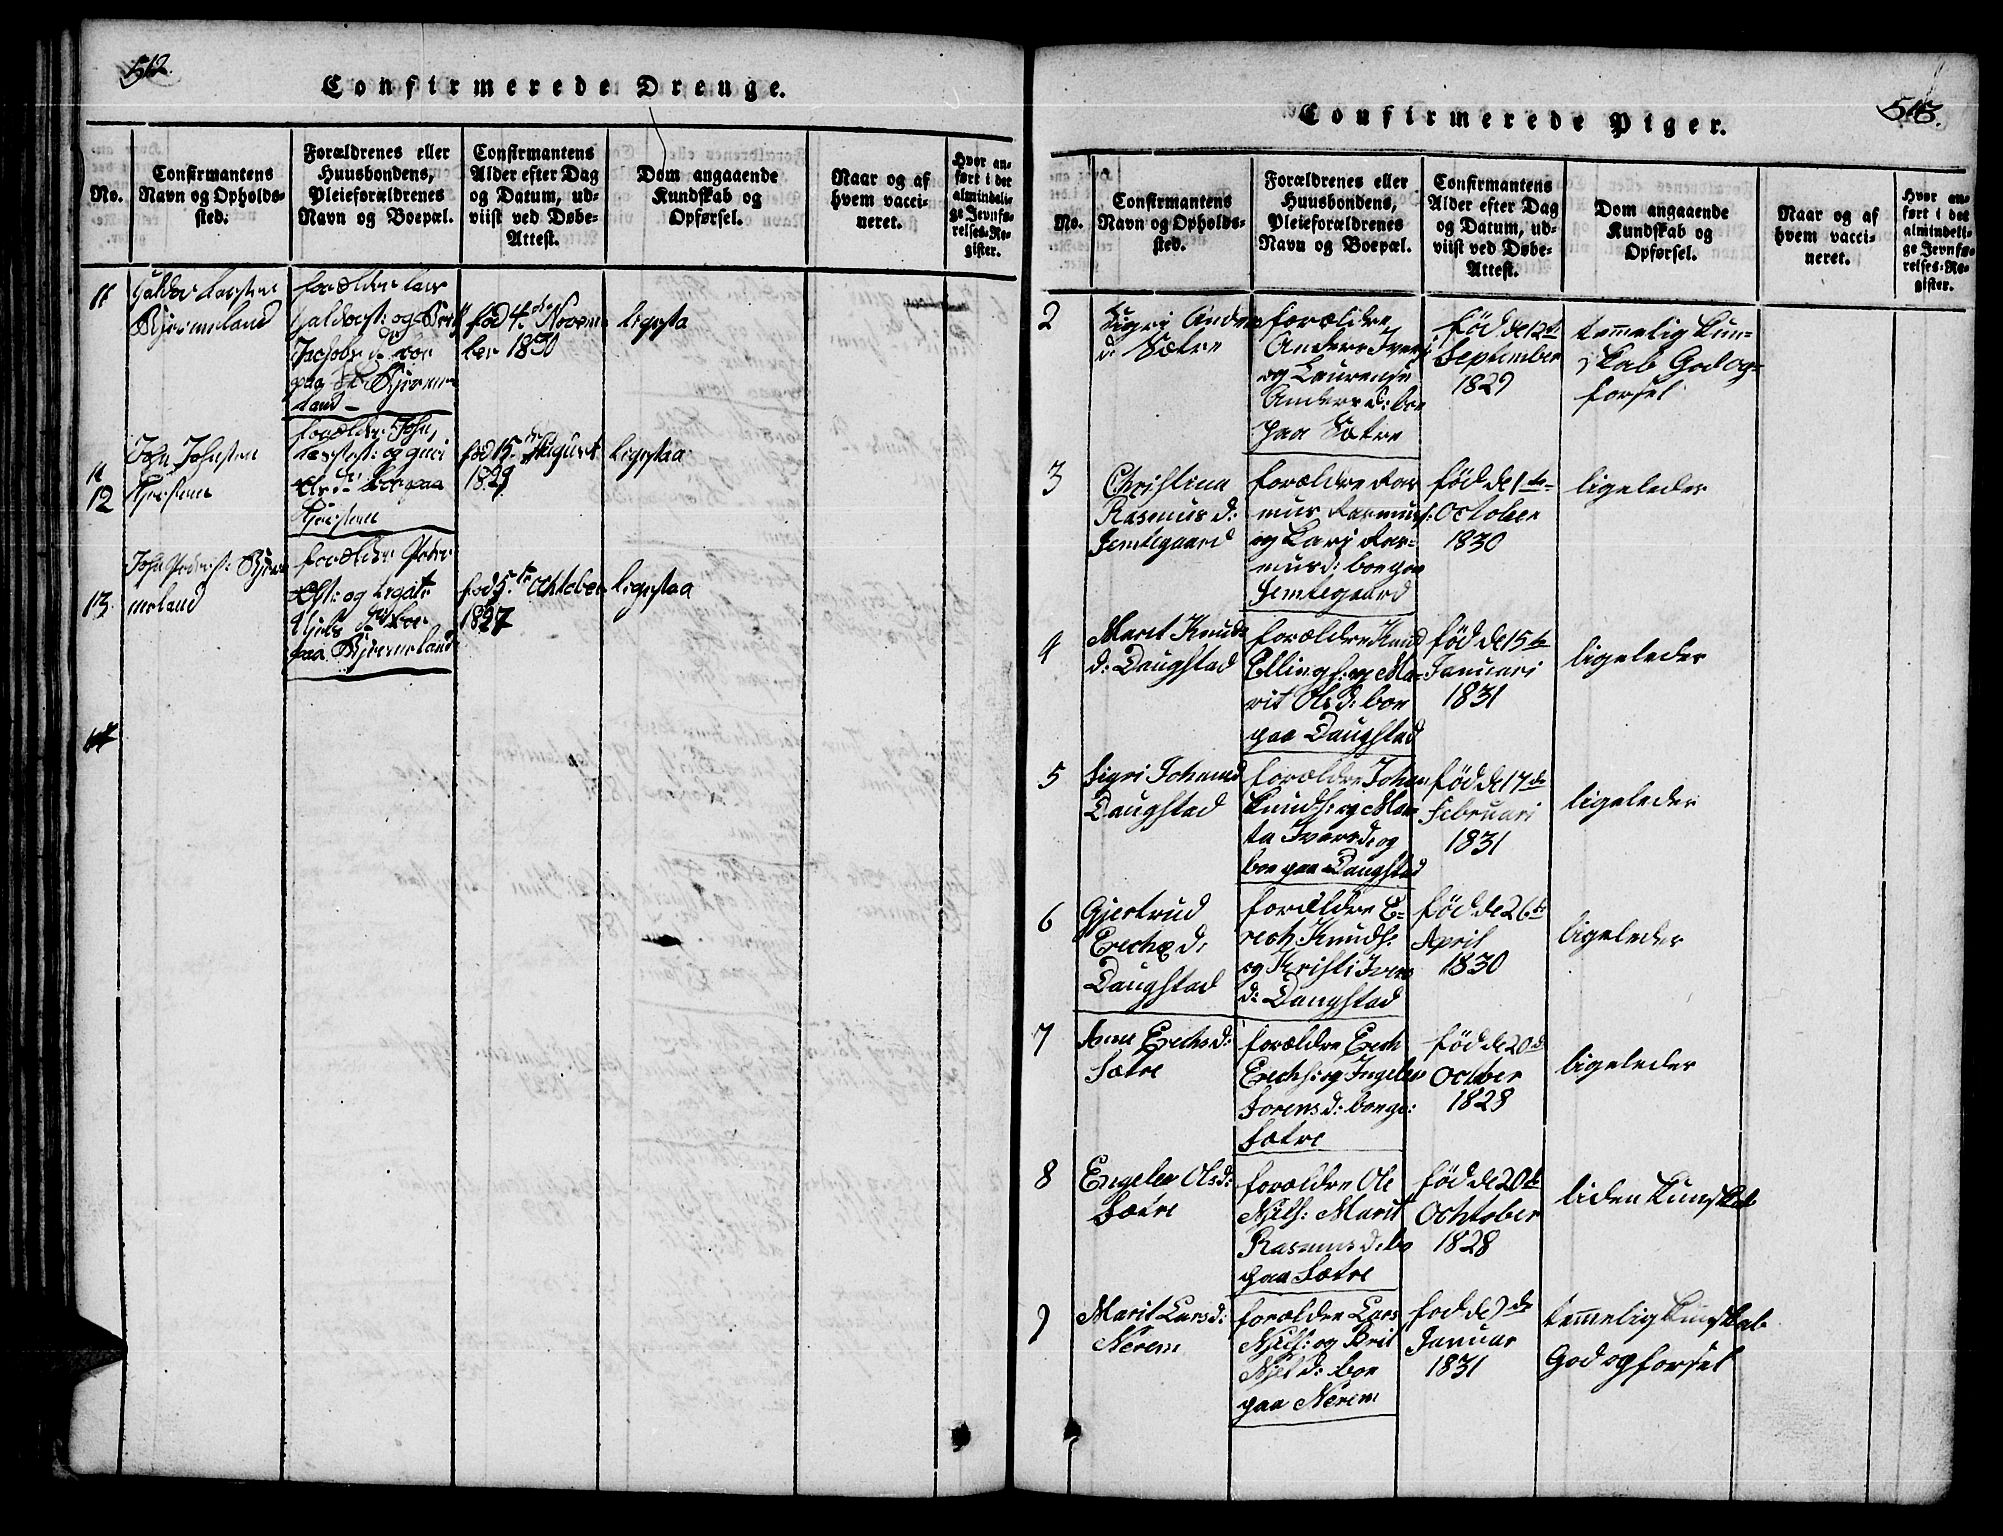 512.
Confirmerede Drenge.
No.
Confirmantens
Navn og Opholds-
sted.
Forældrenes eller
Huusbondens,
Pleieforældrenes
Navn og Boepæl.
Confirmantens
Alder efter Dag
og Datum, ud-
viist ved Døbe-
Attest.
Dom angaaende
Kundskab og
Opførsel.
Naar og af
hvem vacci-
neret.
Hvor an-
ført i det
almindeli-
ge Jevnfø-
relses-Re-
gister.
11
Bjermeland
forældre Lars
og
Jacobs d: boe
paa Bjerme-
land
fød 4. de Novem
ber 1830
ligesaa
12
John Johnsen
forældre John
fød 15. de August
1829
ligesaa
13
John Peders: Bjer
meland
forældre Peder
og
boe
paa Bjermeland
fød 5. te Oktober
1827
ligesaa
513.
Confirmerede Piger.
No.
Confirmantens
Navn og Opholds-
sted.
Forældrenes eller
Huusbondens,
Pleieforældrenes
Navn og Boepæl.
Confirmantens
Alder efter Dag
og Datum, ud-
viist ved Døbe-
Attest.
Dom angaaende
Kundskab og
Opførsel.
Naar og af
hvem vacci-
neret.
Hvor an-
ført i det
almindeli-
ge Jevnfø-
relses-Re-
gister.
2
Sigri Anders
d: Sætre
forældre
Anders Ivers:
og Laurense
Anders d: boe
paa Sætre
fød de 12te
September
1829
temelig Kun-
skab God og-
forsel
3
Christina
Rasmus d:
Jemtegaard
forældre Ras
mus Rasmuss:
og Kari Ras-
mus d: boe paa
Jemtegaard
fød de 1te
October
1830
ligeleder
4
Marit Knuds
d: Daugstad
forældre Knud
Ellings: og Ma-
rit Ols d: boe
paa Daugstad
fød de 15te
Januari
1831
ligeleder
5
Sigri Johansd
Daugstad
forældre Johan
Knuds: og Mar
ta Ivers d: og
boe paa Daugstad
fød de 17de
Februari
1831
ligeleder
6
Gjertrud
Erechs d:
Daugstad
forældre E-
rech Knuds:
og Kristi Ivers
d: Daugstad
fød de 26te
April
1830
ligeleder
7
Ane Erechs d:
Sætre
forældre Erech
Erechs: og Ingeler
Sorens d: boe pa:
Sætre
fød de 20d
October
1828
ligeleder
8
Engeler Ols d:
Sætre
forældre Ole
Niels: Marit
Rasmus d: bo
paa Sætre
fød de 20de
Ochtober
1828
liden Kunskab
9
Marit Lars d:
Nerem
forældre Lars
Niels: og Brit
Niels d: boe
paa Nerem
fød de 9de
Januar
1831
temmelig Kunskab
God og forsel